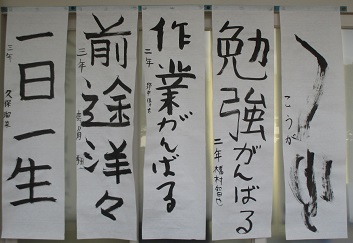 こうが
勉強がんばる
二年
作業がんばる
二年
前途洋々
三年
一日一生
三年 久保